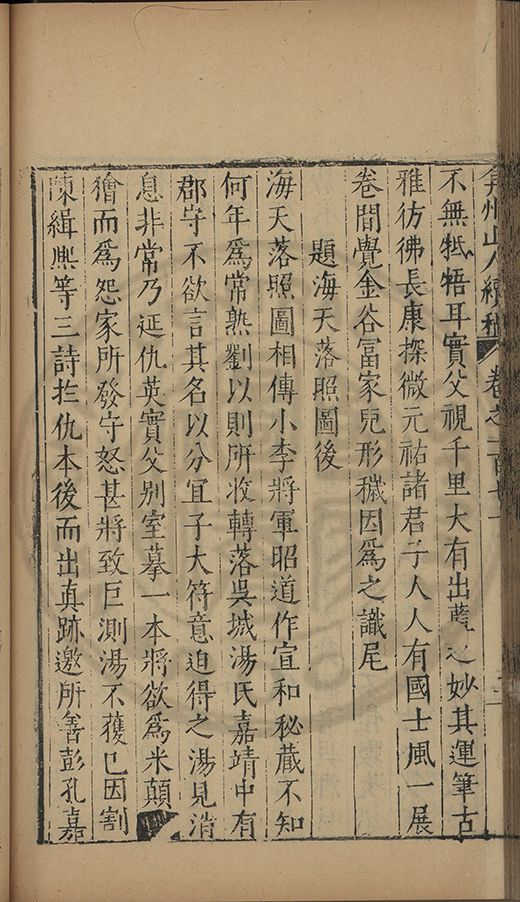 弇州山人續稿 卷之一百七十
不無牴牾耳實父視千里大有出藍之妙其運筆古
雅彷彿長康探微元祐諸君子人人有國士風一展
卷間覺金谷富家兒形穢因爲之識尾
題海天落照圖後
海天落照圖相傳小李將軍昭道作宣和秘蔵不知
何年爲常熟劉以則所收轉落吳城湯氏嘉靖中有
郡守不欲言其名以分宜子大符意迫得之湯見消
息非常乃延仇英實父别室摹一本將欲爲米顛
獪而爲怨家所發守怒甚將致叵測湯不獲已因割
陳緝熙等三詩於仇本後而出真跡邀所善彭孔嘉